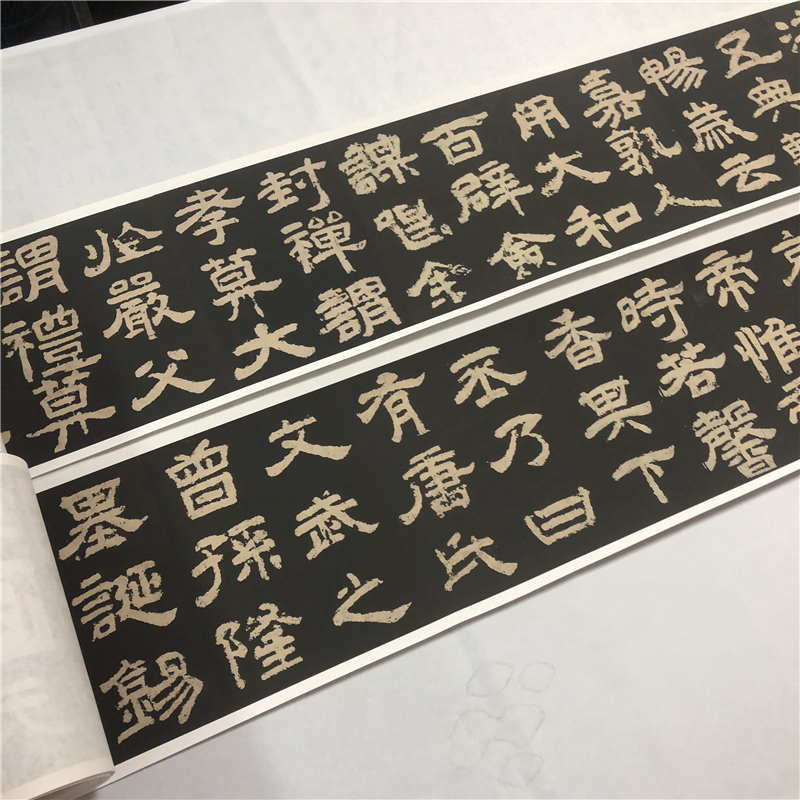 五典
暢歲云
嘉孰人
用大和
百辟僉
謀倡余
封禪謂
孝莫大
於嚴父
謂禮莫
帝惟
時若馨
香其下
丕乃曰
有唐氏
文武之
曾孫隆
基誕錫